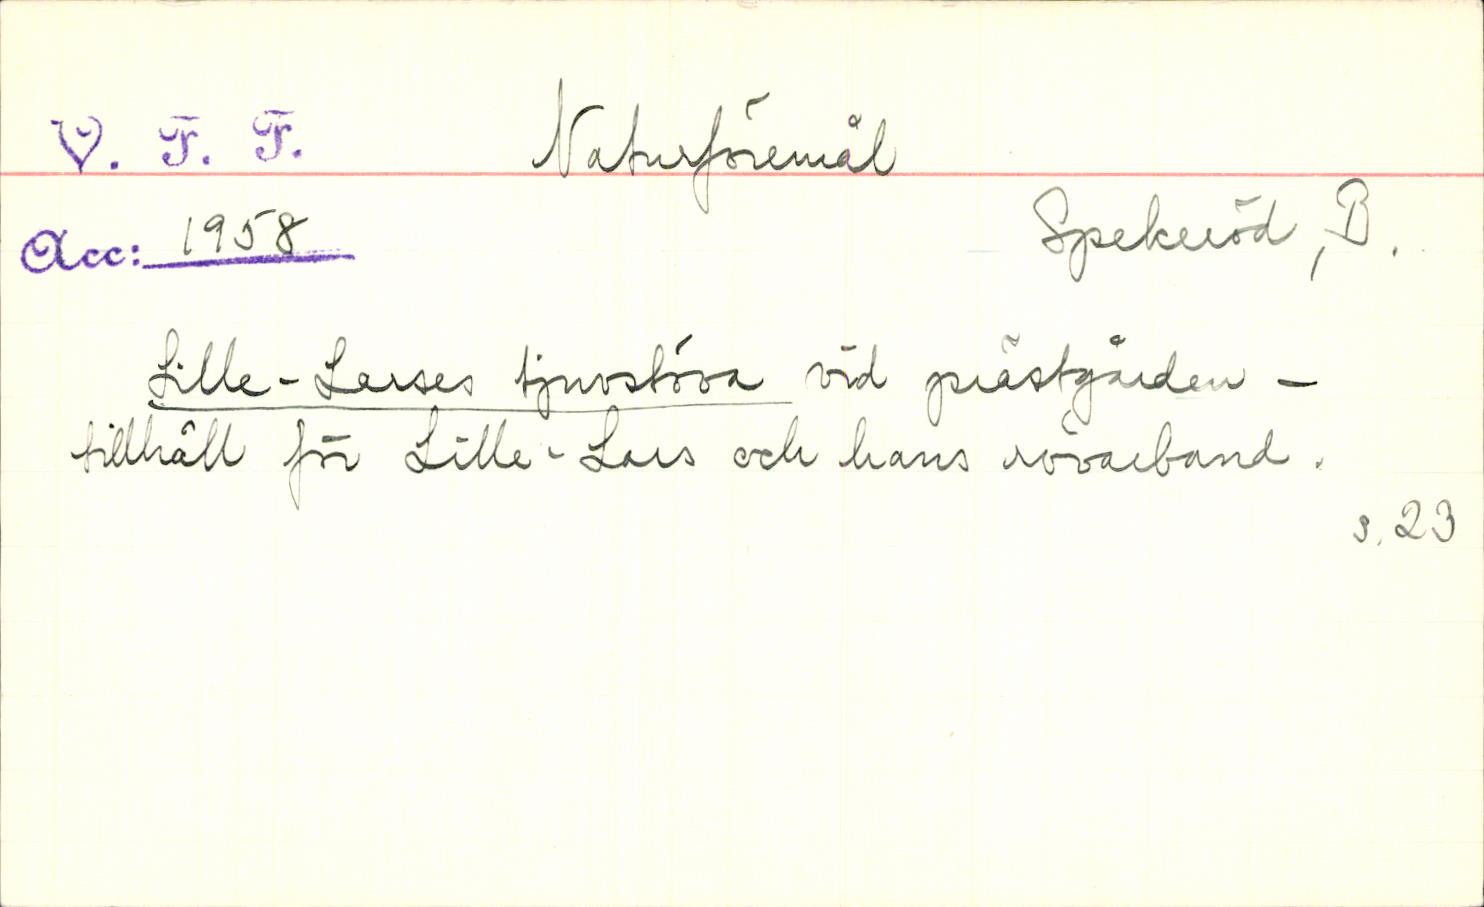 V. F. F.
Naturföremål
Acc: 1958
Spekeröd, B.
Lille-Larses tjuvstöva vid prästgården –
tillhåll för Lille-Lars och hans rövarband.
s. 23